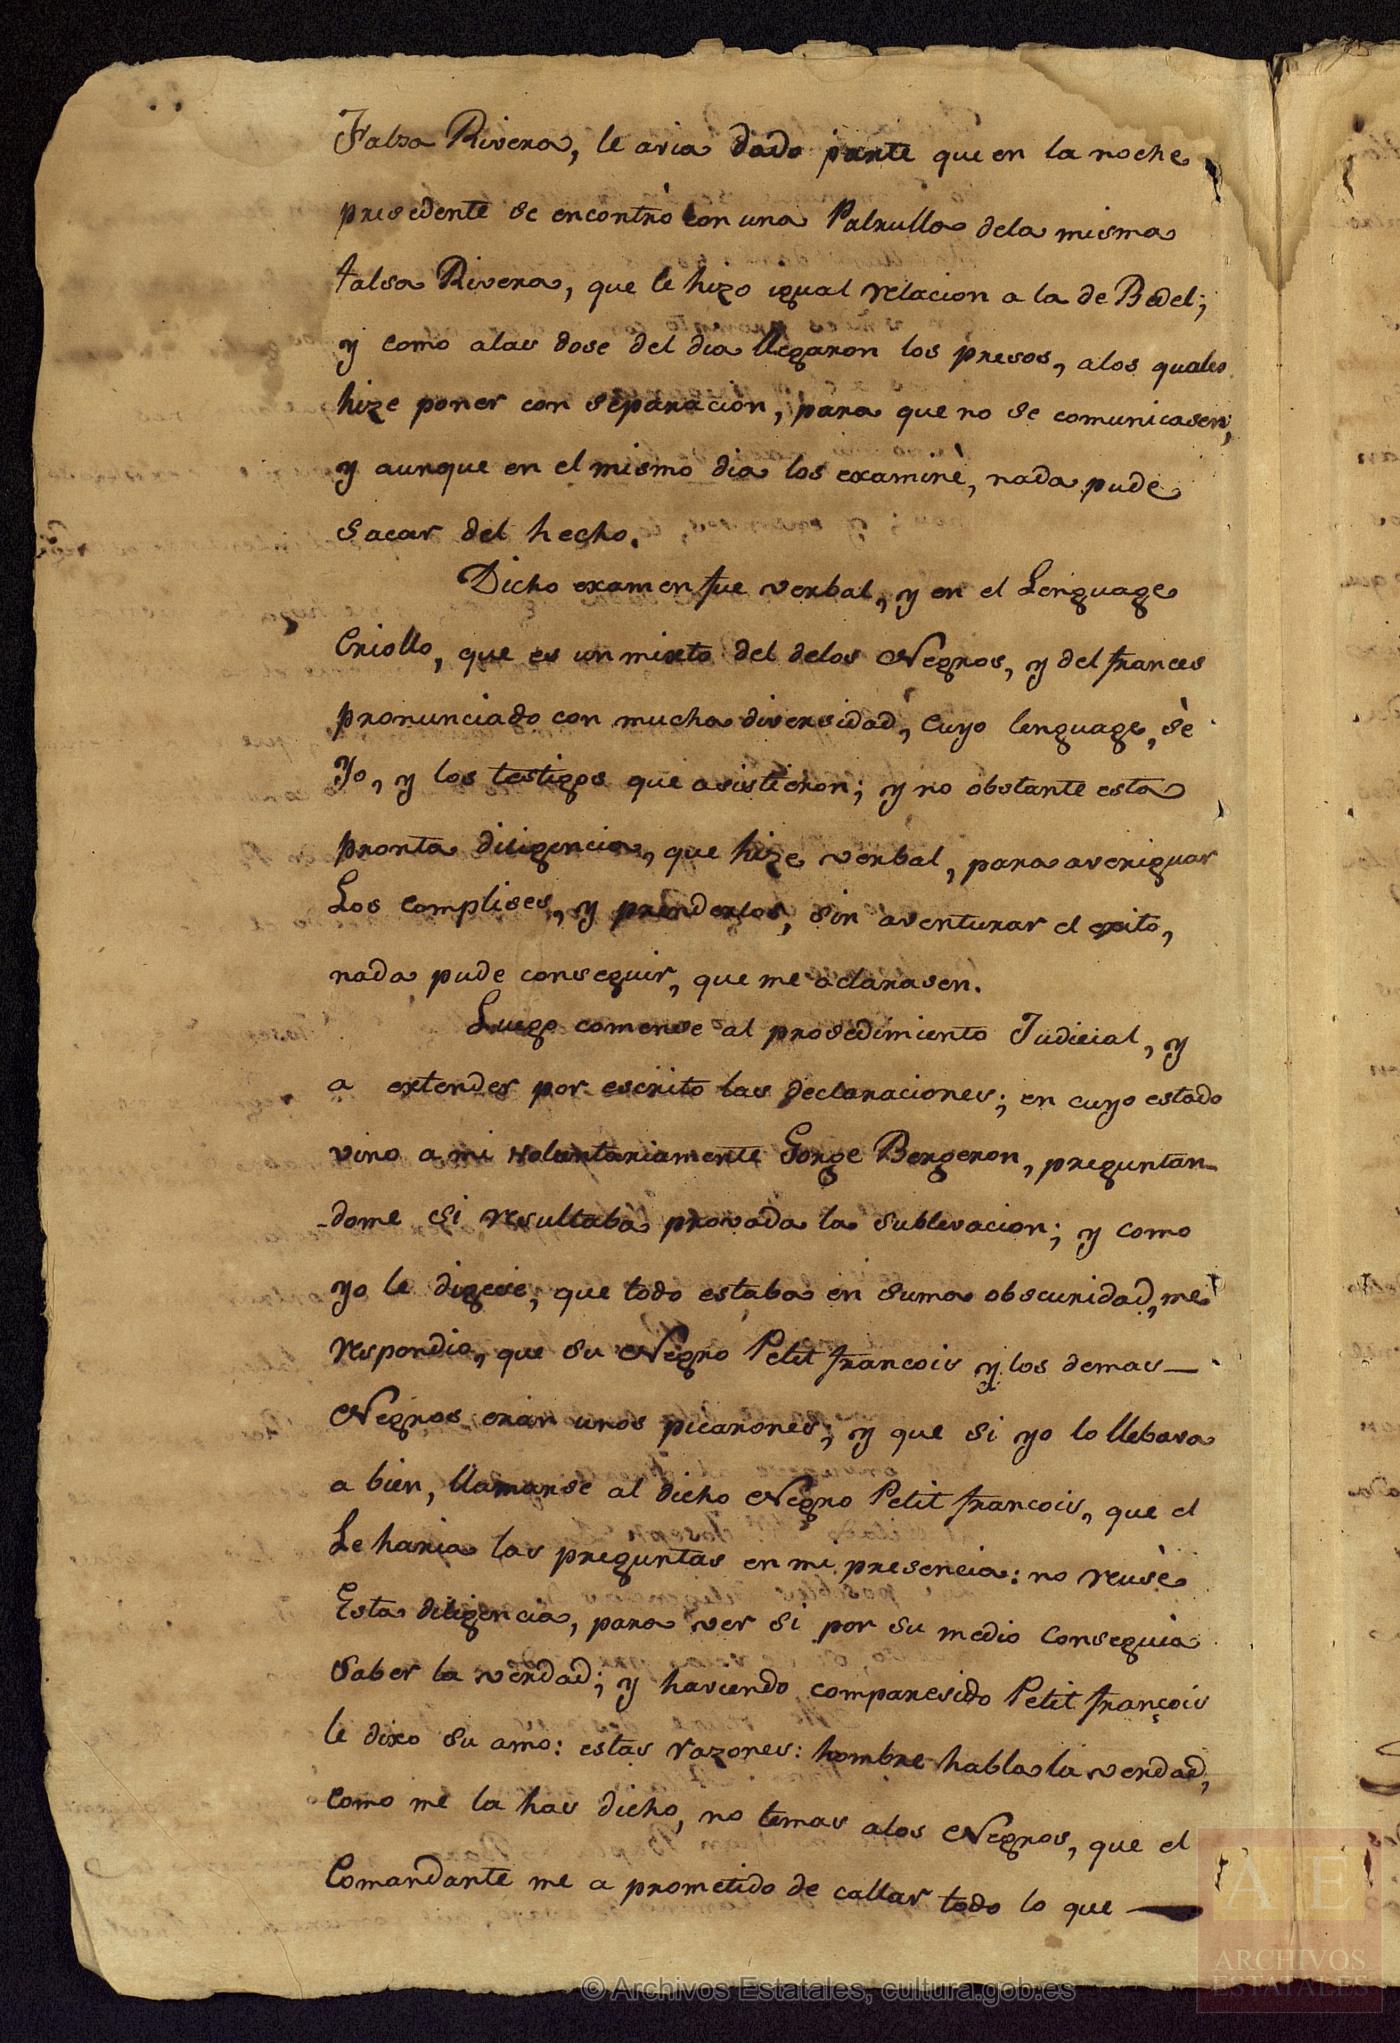 Falsa Rivera, le avia dado parte que en la noche
presedente se encontrò con una Patrulla dela misma
falsa Rivera, que le hizo igual relacion a la de Bedel;
y como alas dose del dia llegaron los presos, alos quales
hize poner con separacion, para que no se comunicasen;
y aunque en el mismo dia los examinè, nada pude
sacar del hecho.
Dicho examen fue verbal, y en el Lenguage
Criollo, que es un mixto del delos Negros, y del frances
pronunciado con mucha diversidad, cuyo lenguage, sè
Yo, y los testigos que asistieron; y no obstante esta
pronta diligencia, que hize verbal, para averiguar
Los complises, y prenderlos, sin aventurar el exito,
nada pude conseguir, que me aclarasen.
Luego comense al prosedimiento Judicial, y
a extender por escrito las declaraciones; en cuyo estado
vino a mi voluntariamente Gorge Bergeron, preguntan-
-dome si resultaba provada la sublevacion; y como
yo le digese, que todo estaba en suma obscuridad, me
respondio, que su Negro Petit francois y los demas
Negros eran unos picarones; y que si yo lo llebava
a bien, llamarse al dicho Negro Petit francois, que el
Le haria las preguntas en mi presencia: no reusè
Esta diligencia, para ver si por su medio conseguia
saber la verdad; y haviendo comparesido Petit françois
le dixo su amo: estas razones: hombre habla la verdad,
como me la has dicho, no temas alos Negros, que el
Comandante me a prometido de callar todo lo que
© Archivos Estatales, cultura.gob.es
AE
ARCHIVOS
ESTATALES